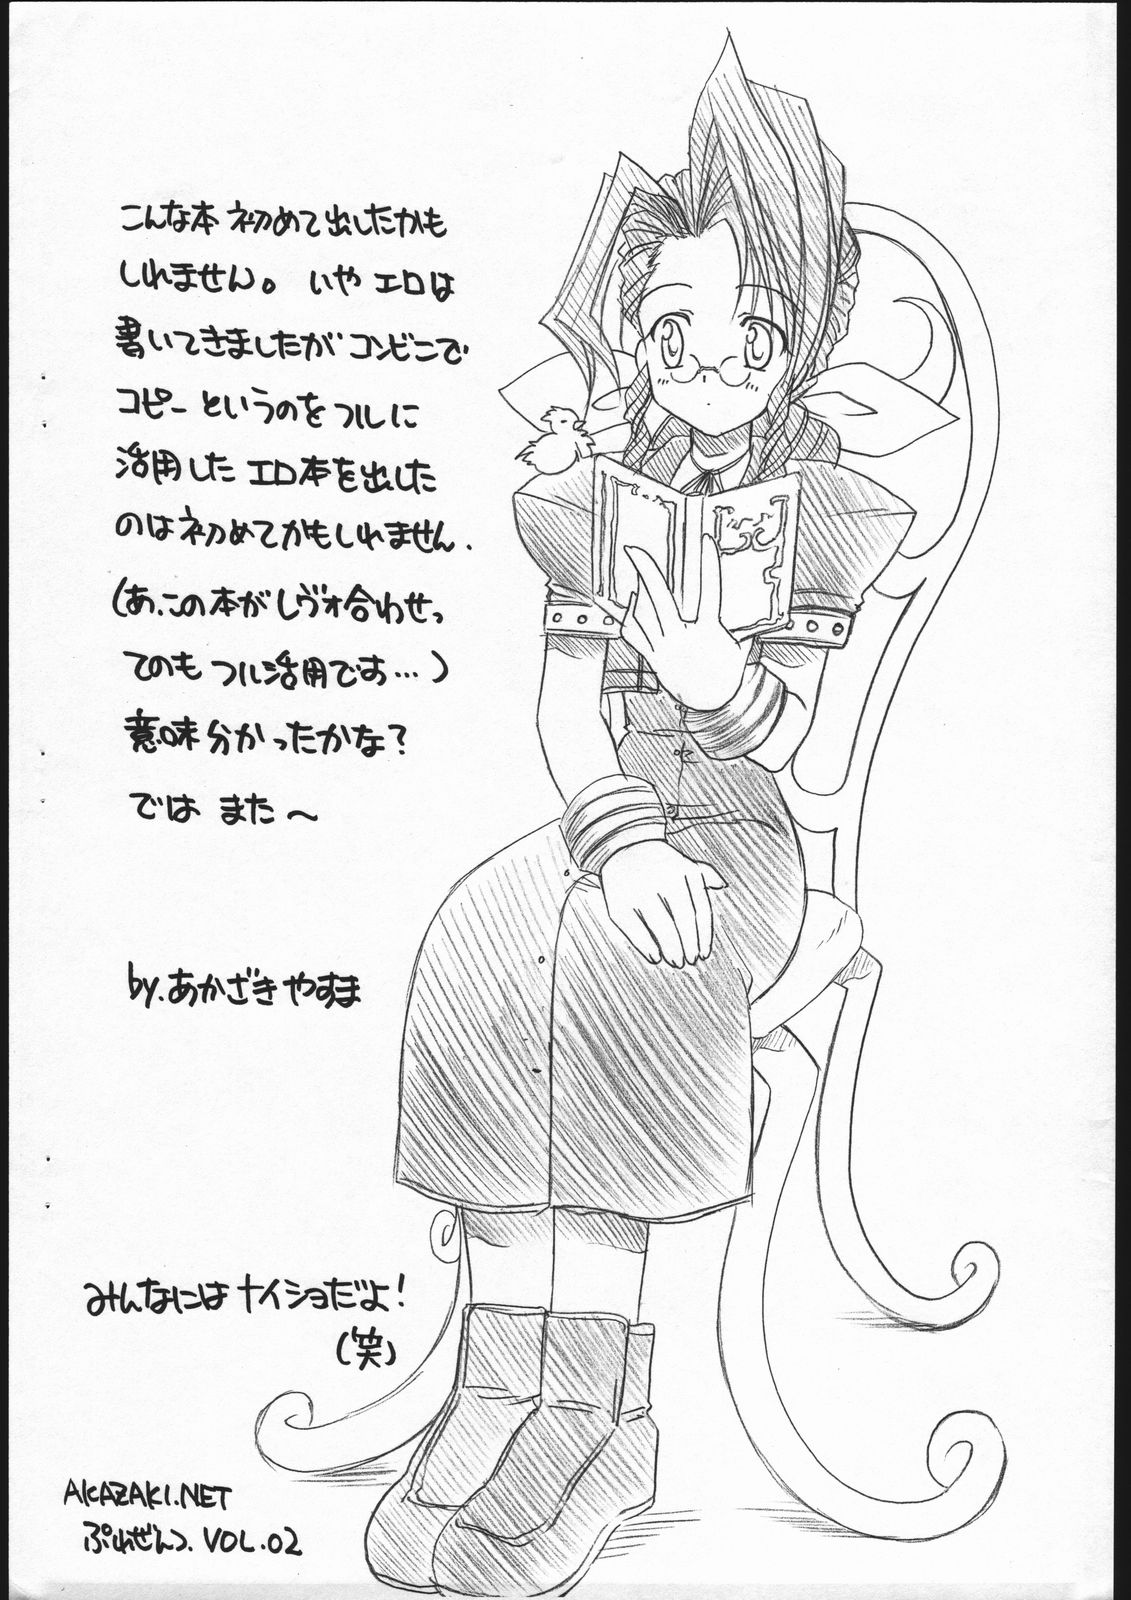 こんな本 初めて出したかも
しれません。 いや エロは
書いてきましたが コンビニで
コピー というのを フルに
活用した エロ本を出した
のは初めてかもしれません.
(あ、この本がレヴォ合わせっ
てのも フル活用です…)
意味分かったかな?
では また～
by.あかざきやすま
みんなにはナイショだよ!
(笑)
AKAZAKI.NET
ぷれぜんつ. VOL.02